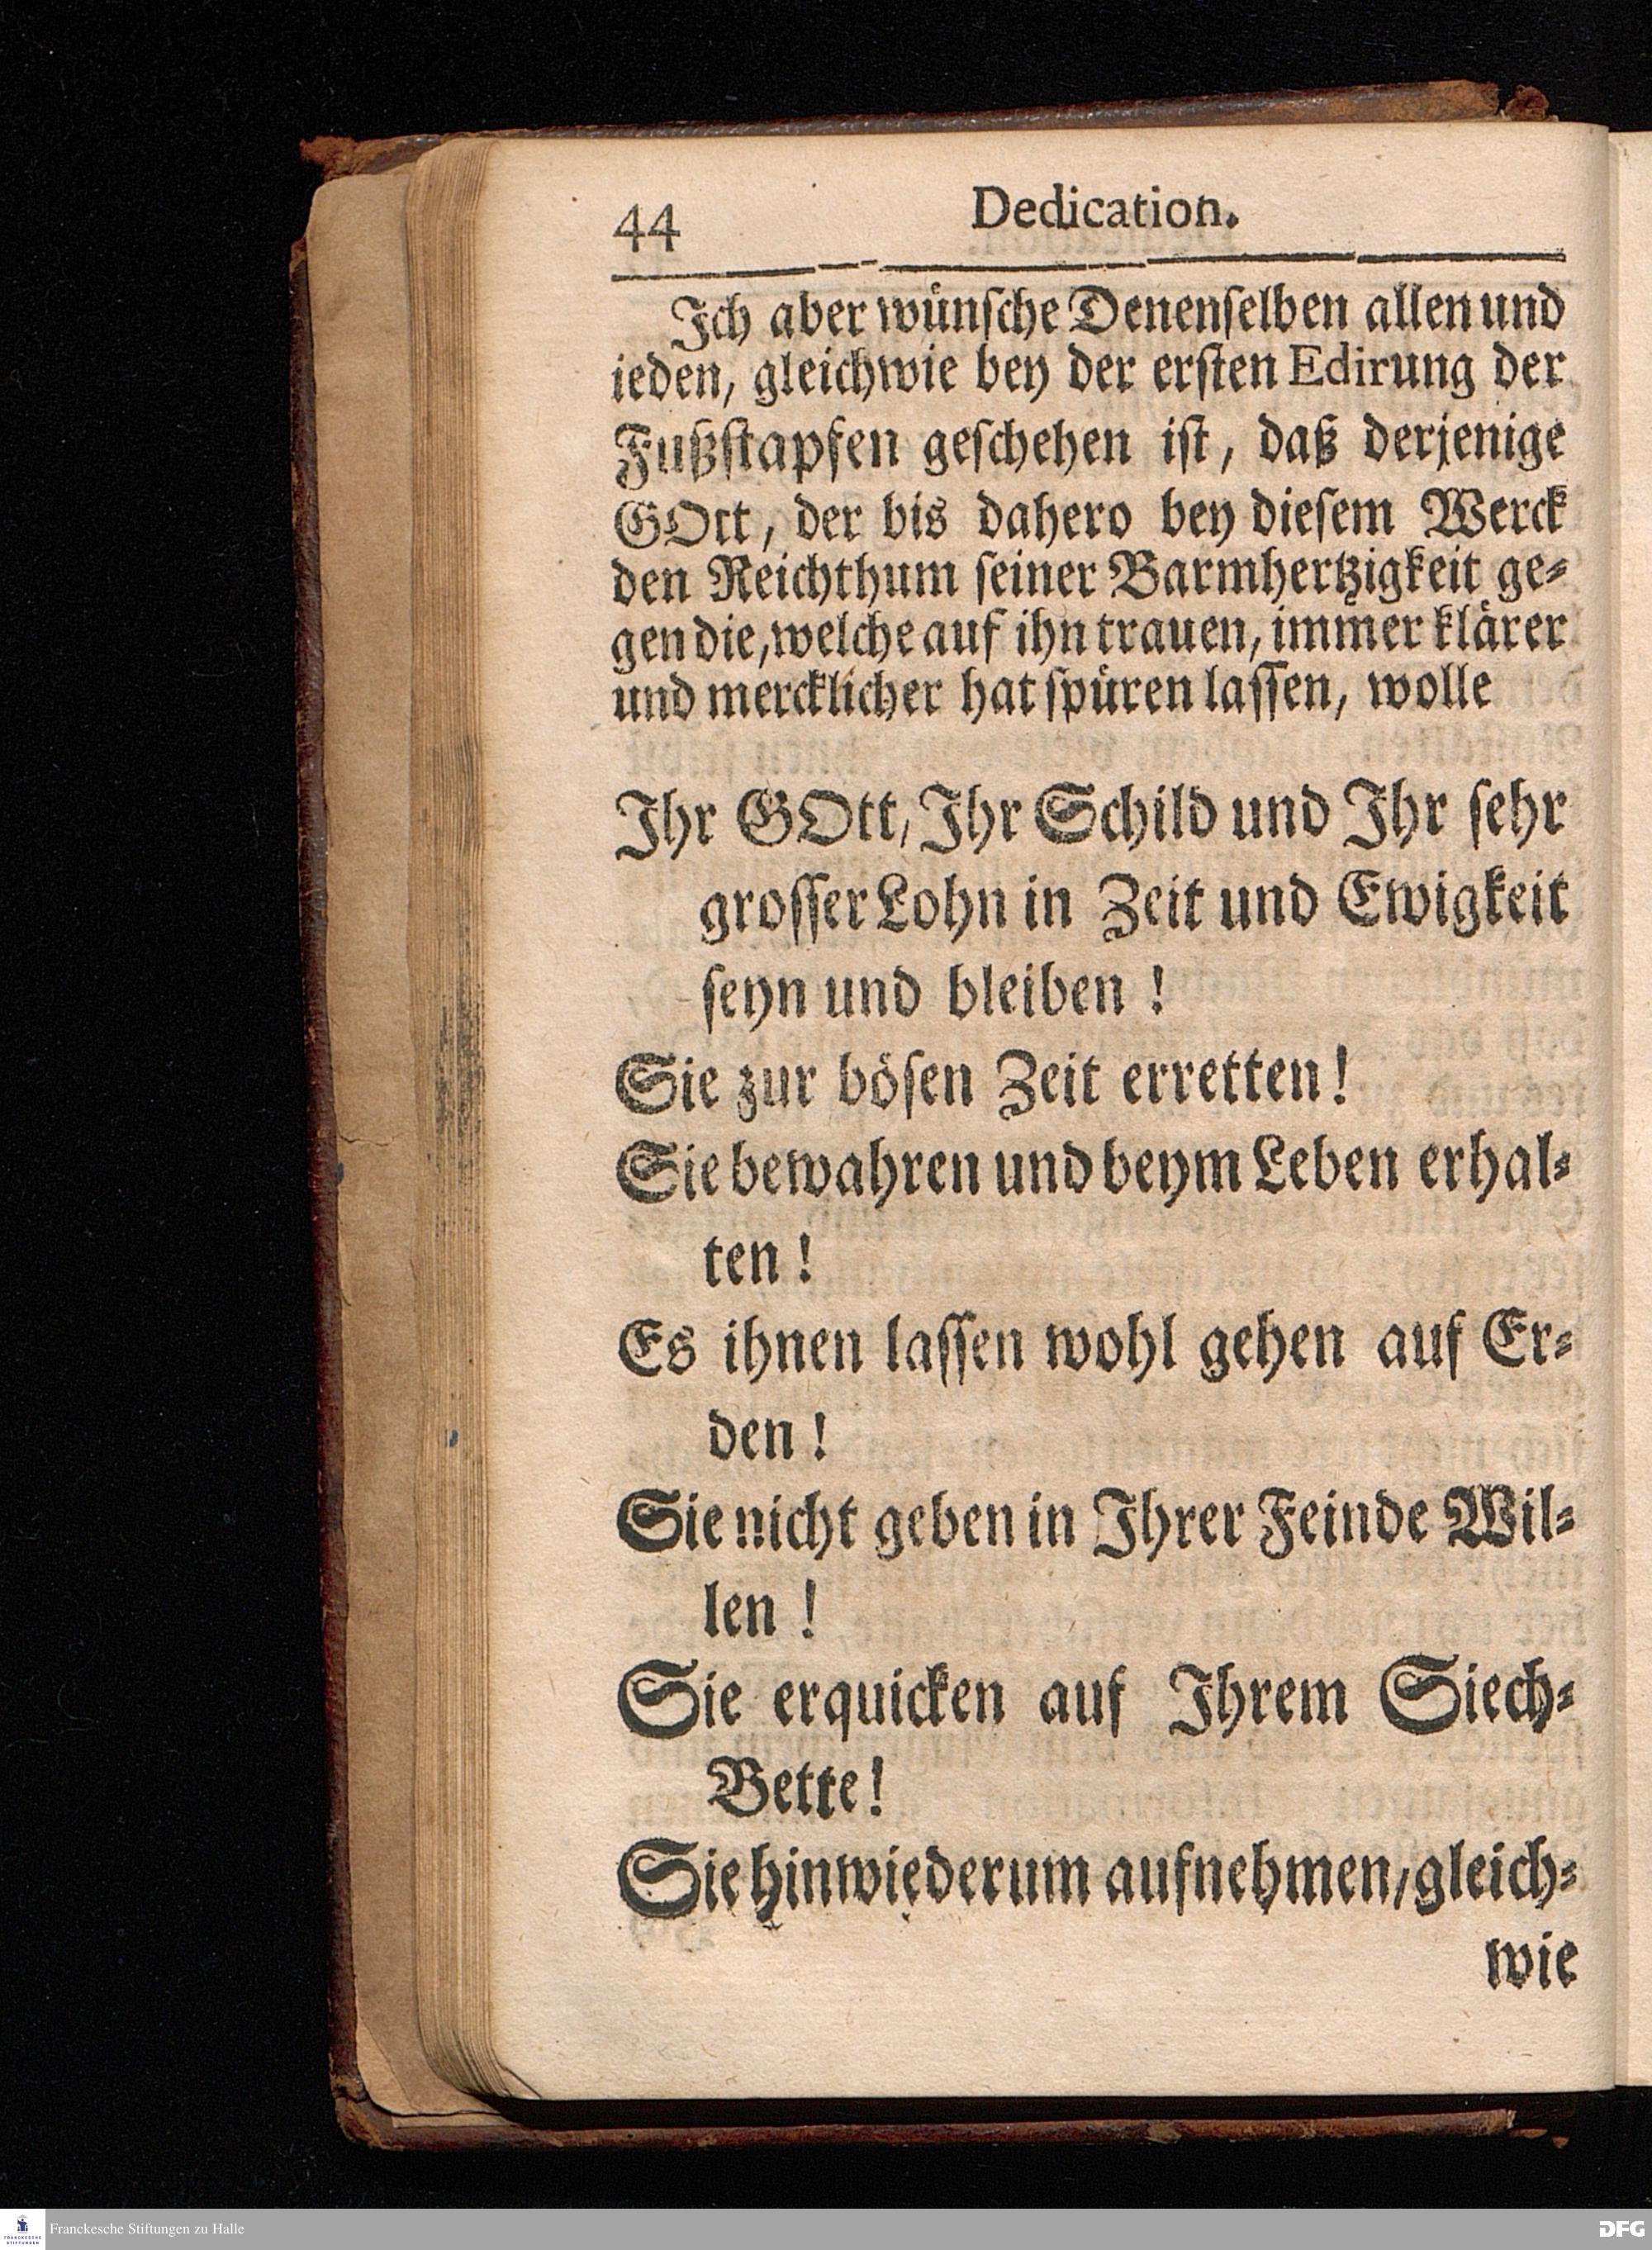 44 Dedication.
Ich aber wünsche Denenselben allen und
ieden, gleichwie bey der ersten Edirung der
Fußstapfen geschehen ist, daß derjenige
GOtt, der bis dahero bey diesem Werck
den Reichthum seiner Barmhertzigkeit ge-
gen die, welche auf ihn trauen, immer klärer
und mercklicher hat spüren lassen, wolle
Ihr GOtt, Ihr Schild und Ihr sehr
grosser Lohn in Zeit und Ewigkeit
seyn und bleiben !
Sie zur bösen Zeit erretten!
Sie bewahren und beym Leben erhal-
ten !
Es ihnen lassen wohl gehen auf Er-
den !
Sie nicht geben in Ihrer Feinde Wil-
len !
Sie erquicken auf Ihrem Siech-
Bette!
Sie hinwiederum aufnehmen, gleich-
wie
FRANCKESCHE
STIFTUNGEN
Franckesche Stiftungen zu Halle
DFG